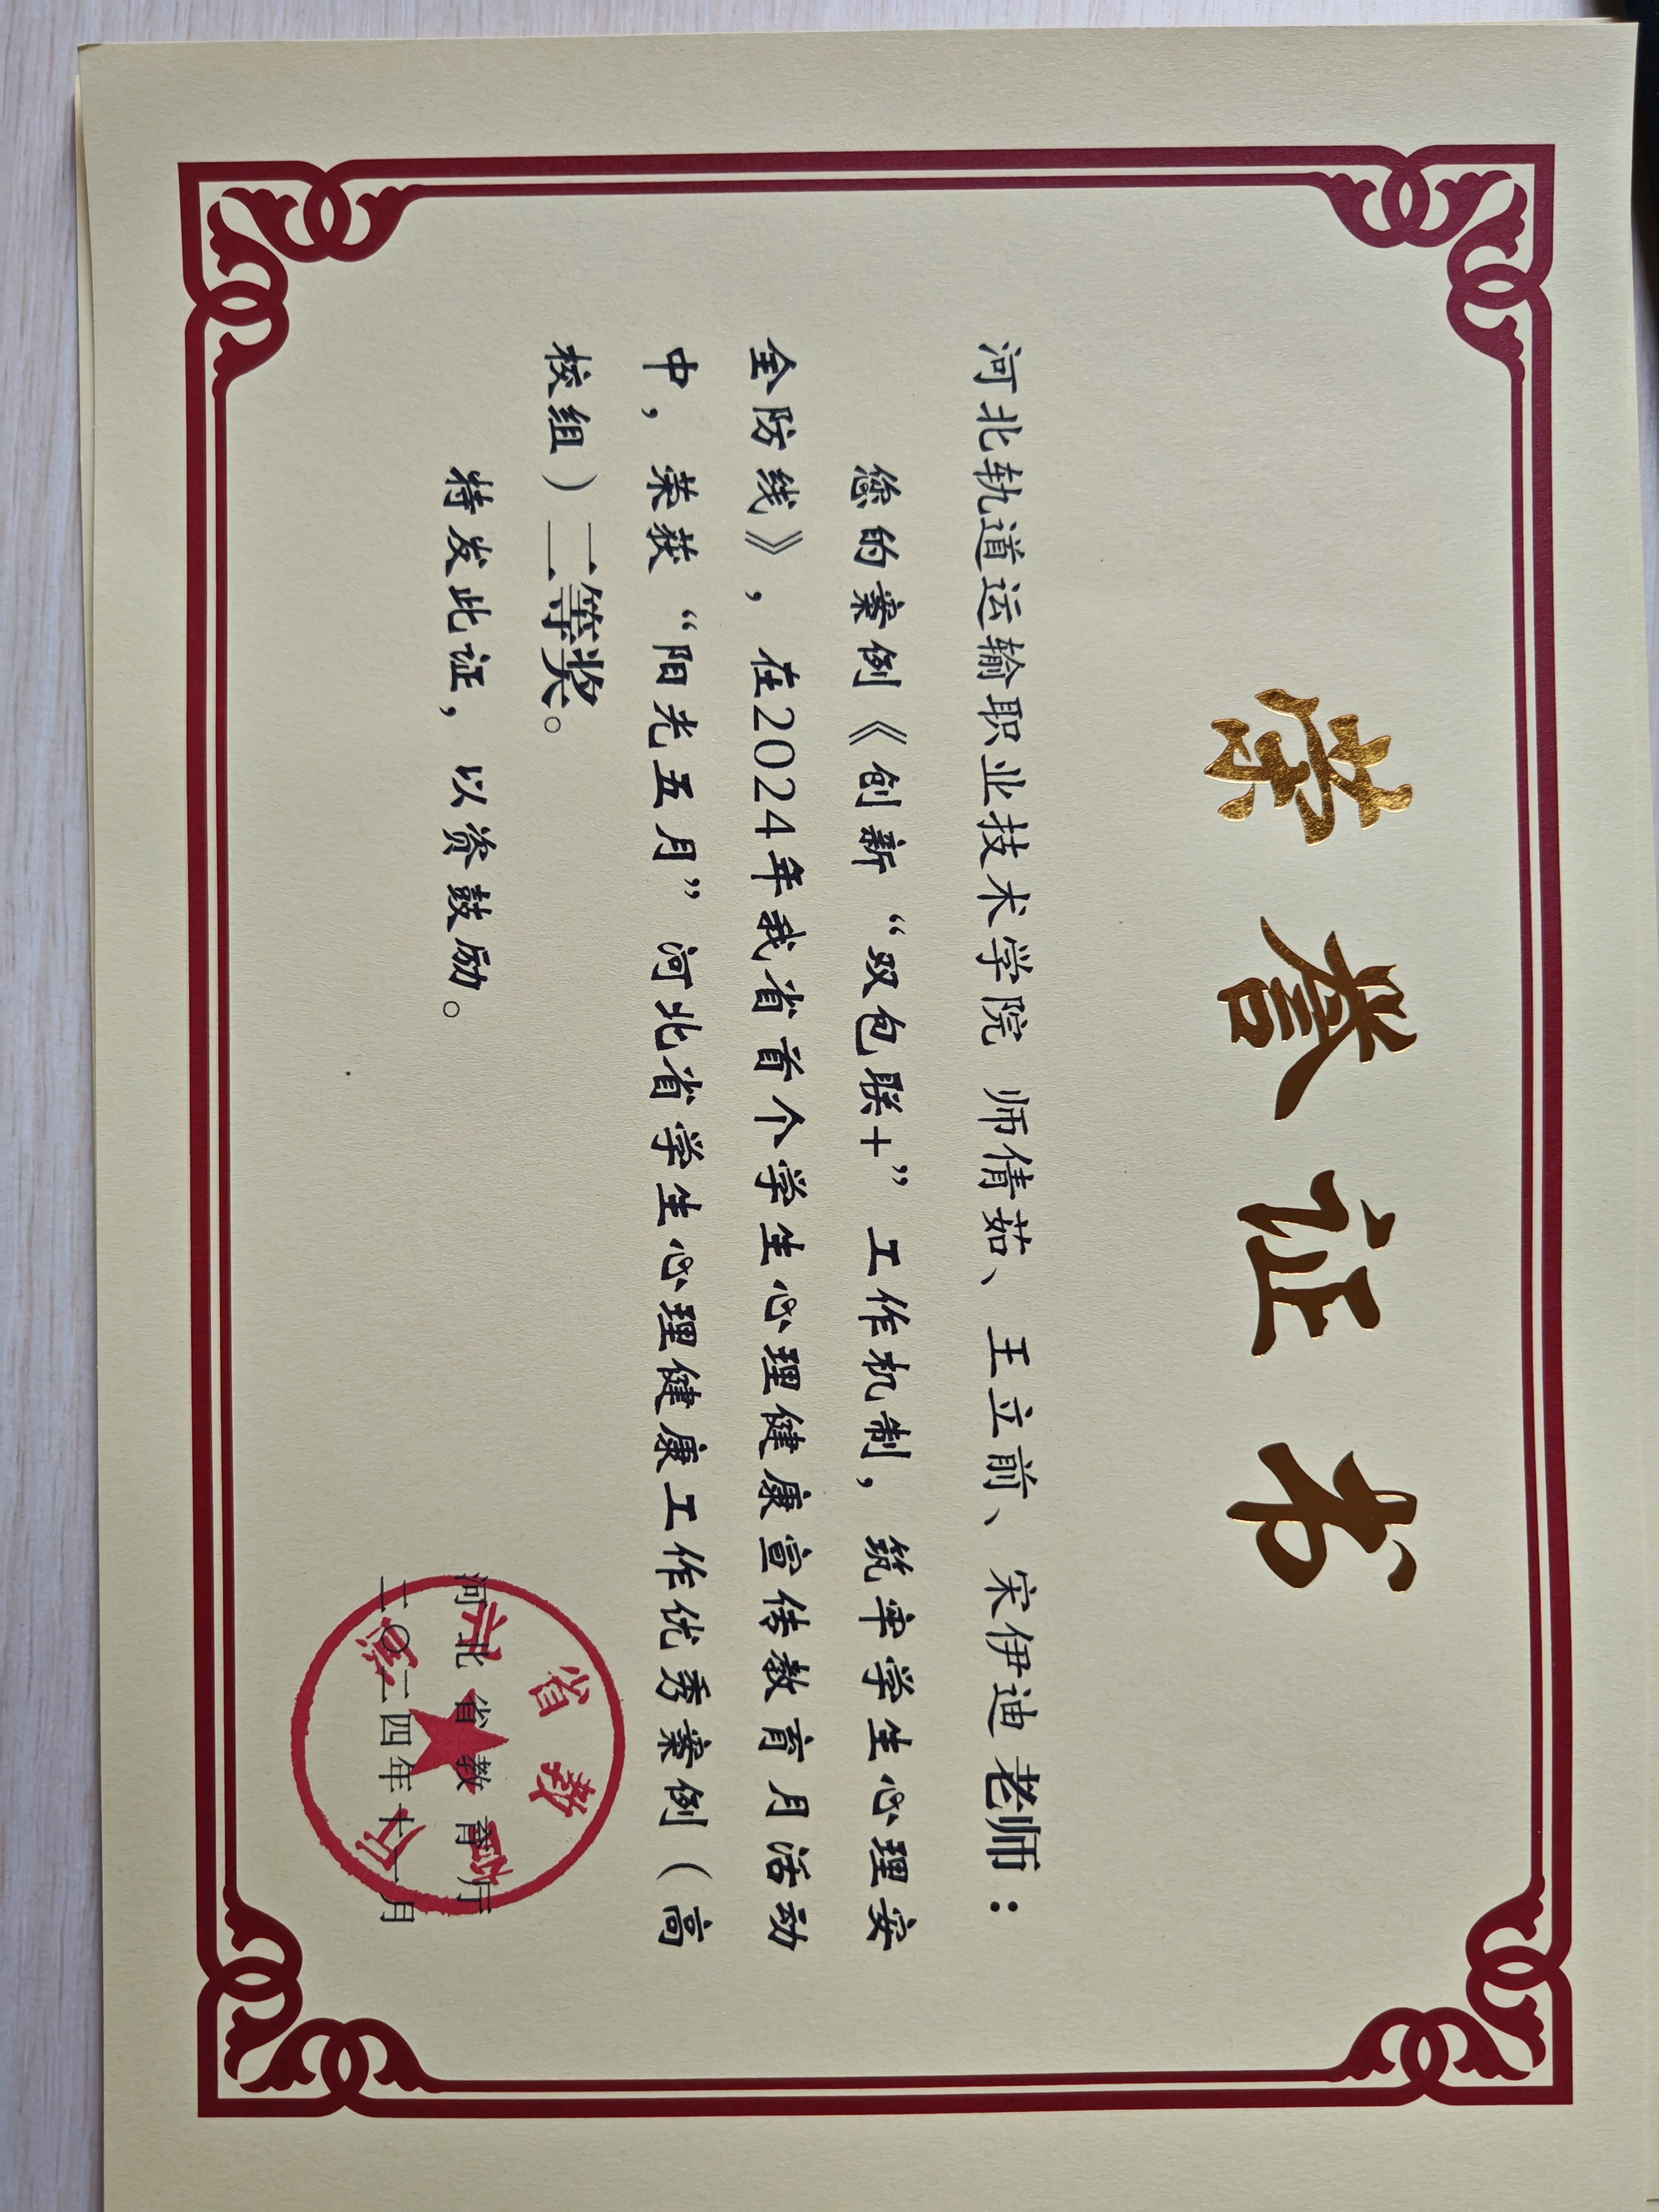 荣誉证书
河北轨道运输职业技术学院 师倩茹、王立前、宋伊迪老师：
您的案例《创新“双包联+”工作机制，筑牢学生心理安
全防线》，在2024年我省首个学生心理健康宣传教育月活动
中，荣获“阳光五月”河北省学生心理健康工作优秀案例（高
校组）二等奖。
特发此证，以资鼓励。
河北省教育厅
二〇二四年十一月
河北省教育厅